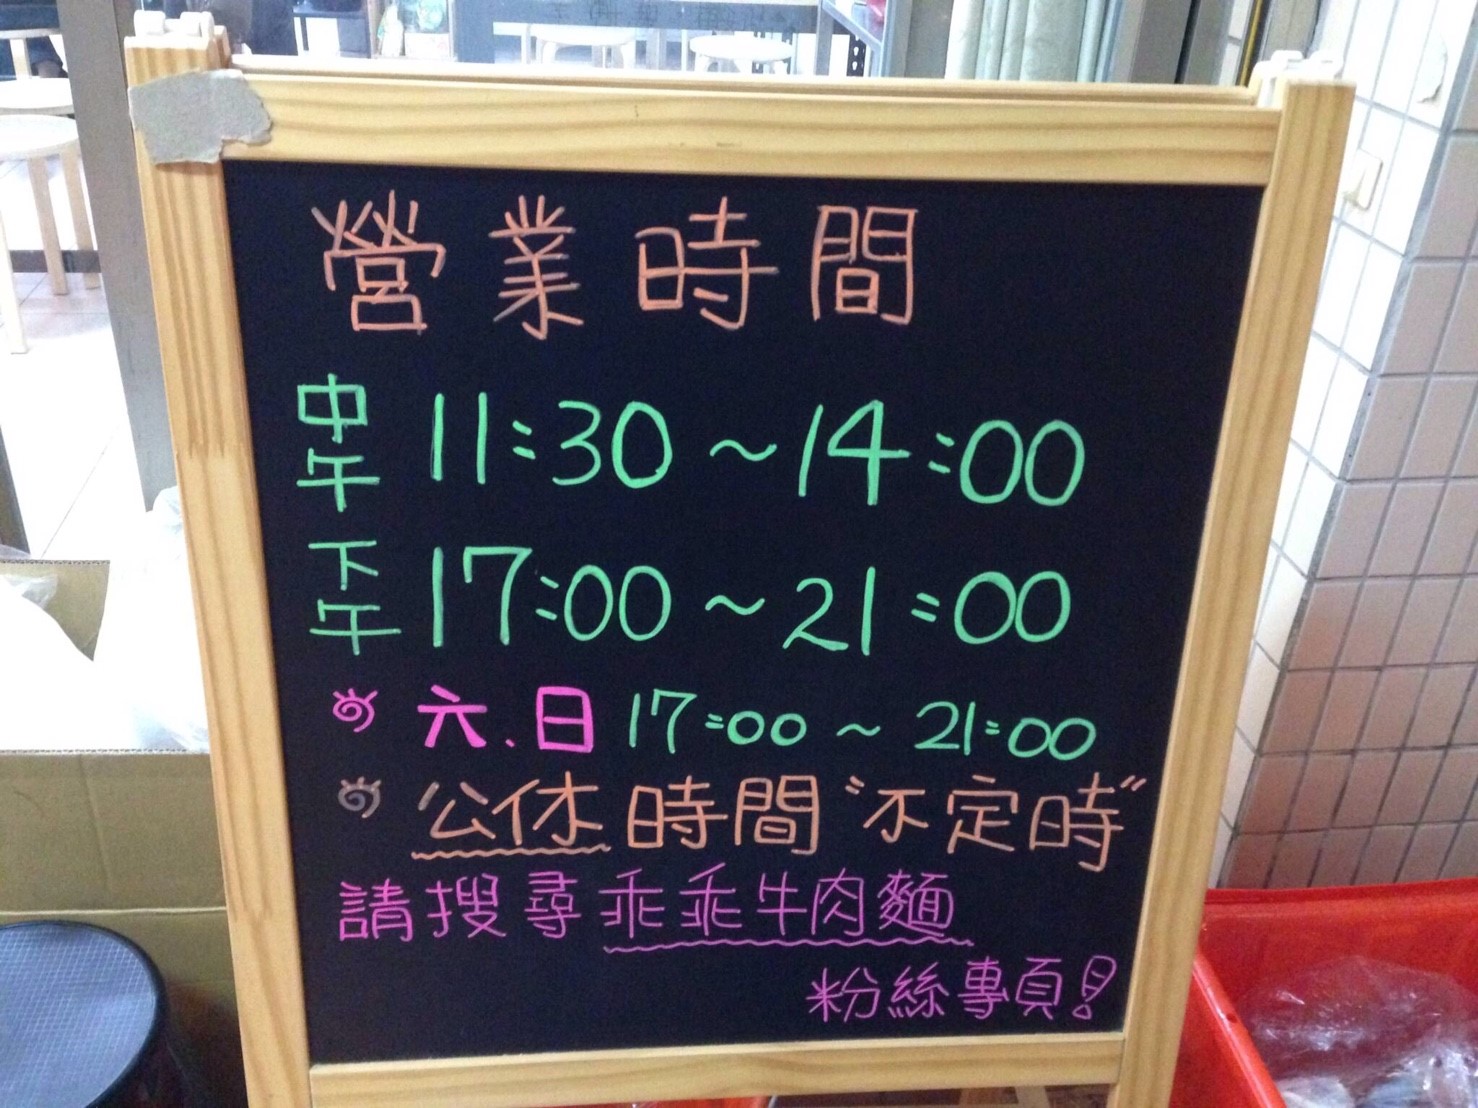 營業時間
中午 11:30～14:00
下午 17:00～21:00
六、日 17:00～21:00
公休時間"不定時"
請搜尋乖乖牛肉麵
粉絲專頁!